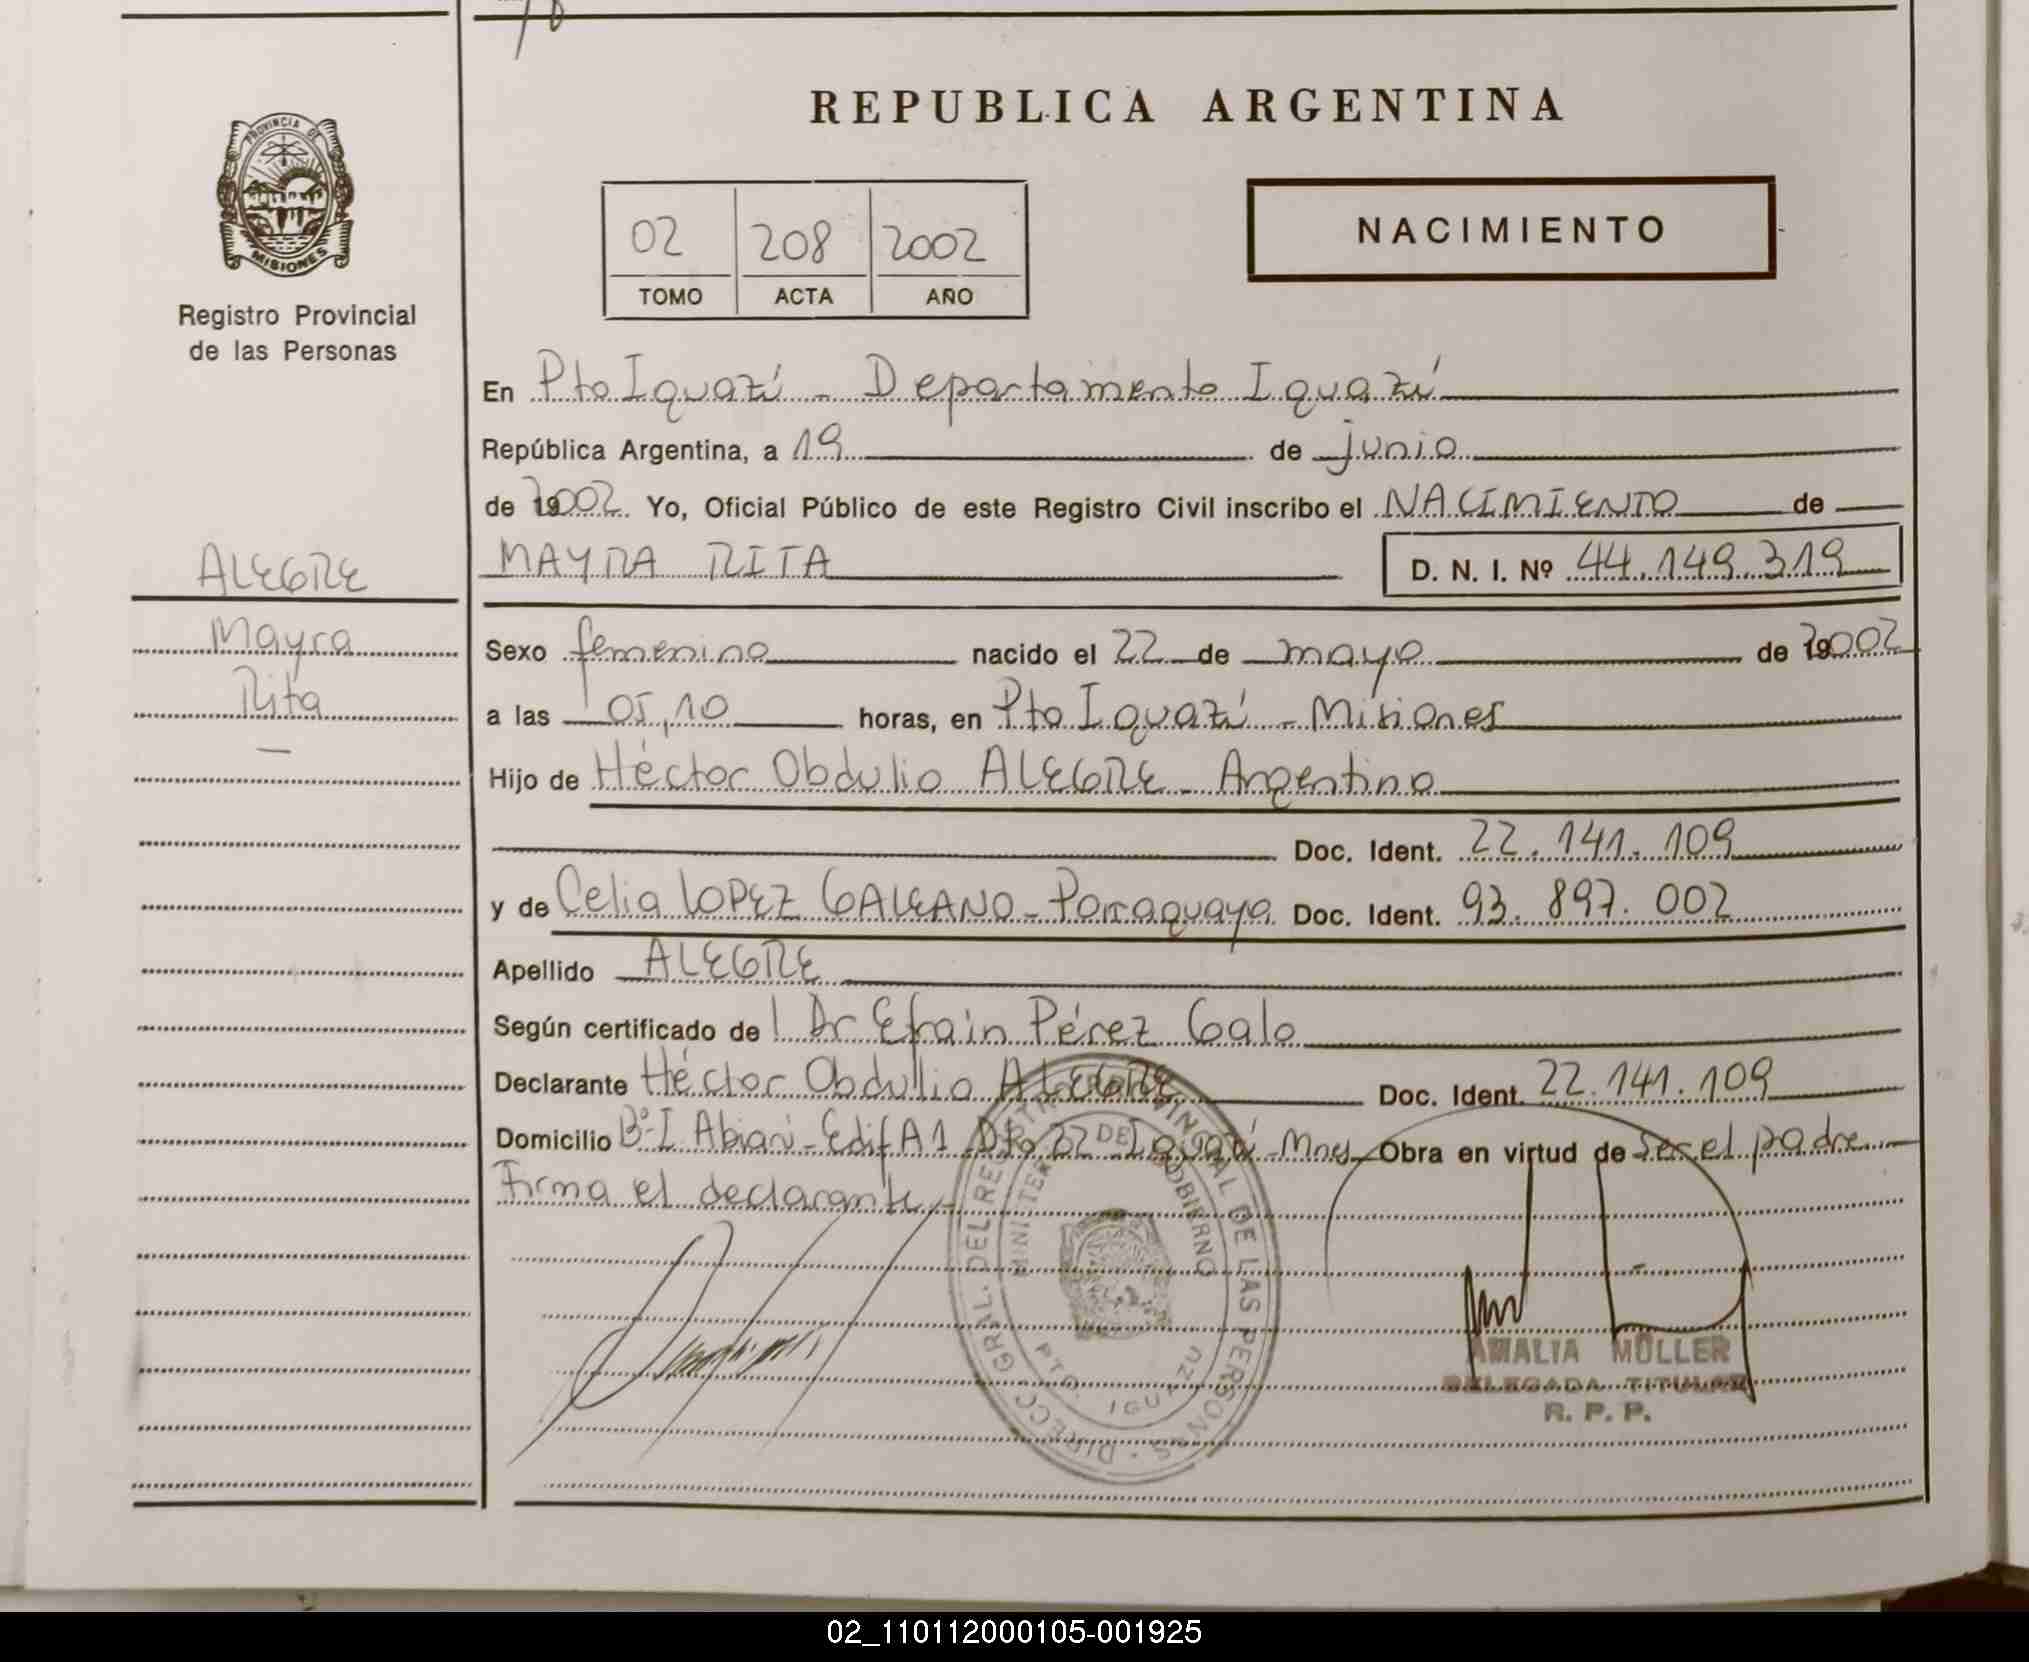 REPUBLICA ARGENTINA
PROVINCIA DE
MISIONES
Registro Provincial
de las Personas
02 208 2002
TOMO ACTA AÑO
NACIMIENTO
En Pto Iguazú - Departamento Iguazú
República Argentina, a 19 de junio
de 2002 Yo, Oficial Público de este Registro Civil inscribo el NACIMIENTO de
MAYRA RITA D. N. I. Nº 44.149.319
ALEGRE
Mayra
Rita
Sexo femenino nacido el 22 de mayo de 2002
a las 05,10 horas, en Pto Iguazú - Misiones
Hijo de Héctor Obdulio ALEGRE - Argentino
Doc. Ident. 22.141.109
y de Celia LOPEZ GALEANO - Paraguaya Doc. Ident. 93.897.002
Apellido ALEGRE
Según certificado de l Dr Efrain Pérez Galo
Declarante Héctor Obdulio ALEGRE Doc. Ident. 22.141.109
Domicilio Bº I Abiari - Edif A1 Dto 22 - Iguazú - Mnes Obra en virtud de ser el padre
Firma el declarante -
DIRECC. GRAL. DEL REGISTRO PROVINCIAL DE LAS PERSONAS
MINISTERIO DE GOBIERNO
PTO. IGUAZU
AMALIA MÜLLER
DELEGADA TITULAR
R. P. P.
02_110112000105-001925